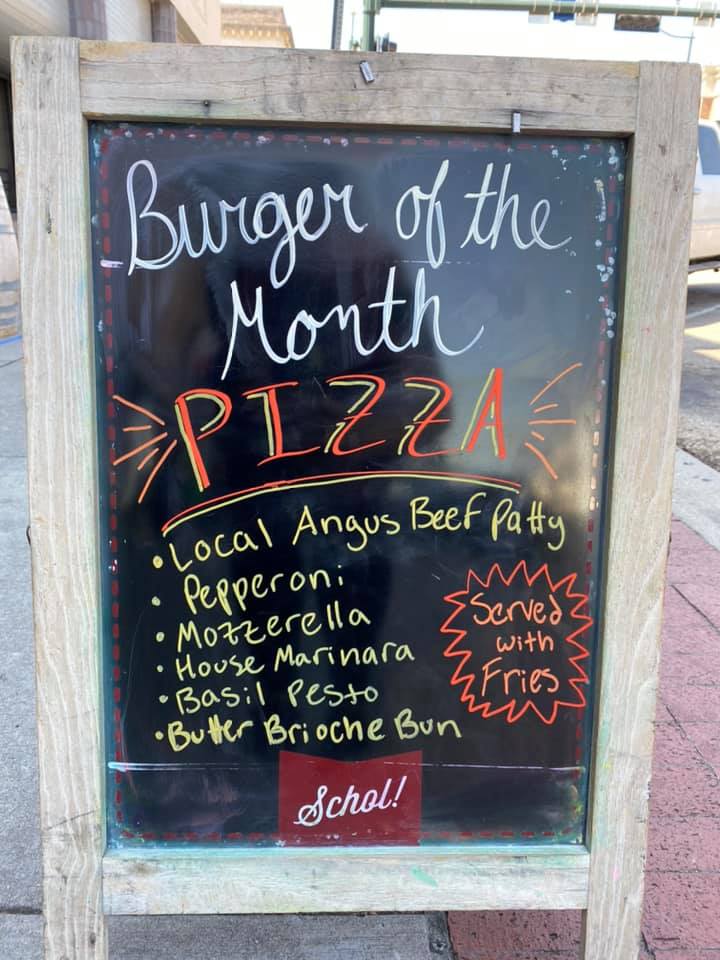 Burger of the
Month
PIZZA
• Local Angus Beef Patty
• Pepperoni
• Mozzerella
• House Marinara
• Basil Pesto
• Butter Brioche Bun
Served
with
Fries
Schol!